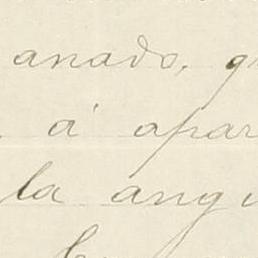 anado, g
á apar
la angu